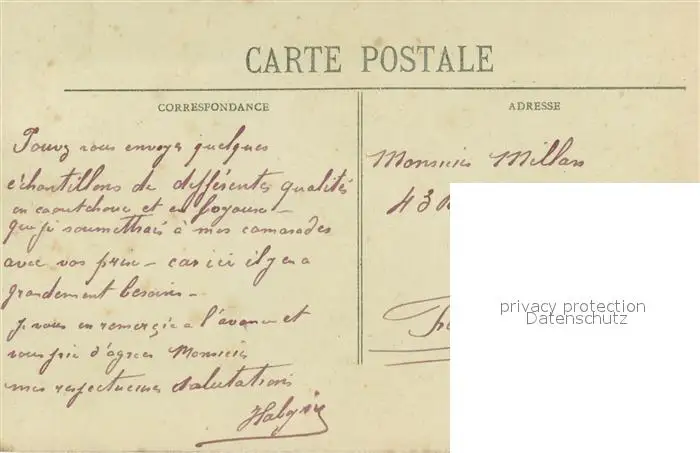 CARTE POSTALE
CORRESPONDANCE
ADRESSE
Pouvez vous envoyer quelques
échantillons de différentes qualités
en caoutchouc et en
que je soumettrais à mes camarades
avec vos prix — car ici il y en a
grandement besoin —
Je vous en remercie a l'avance et
vous prie d'agréer Monsieur
mes respectueuses salutations
Monsieur Millan
43
privacy protection
Datenschutz